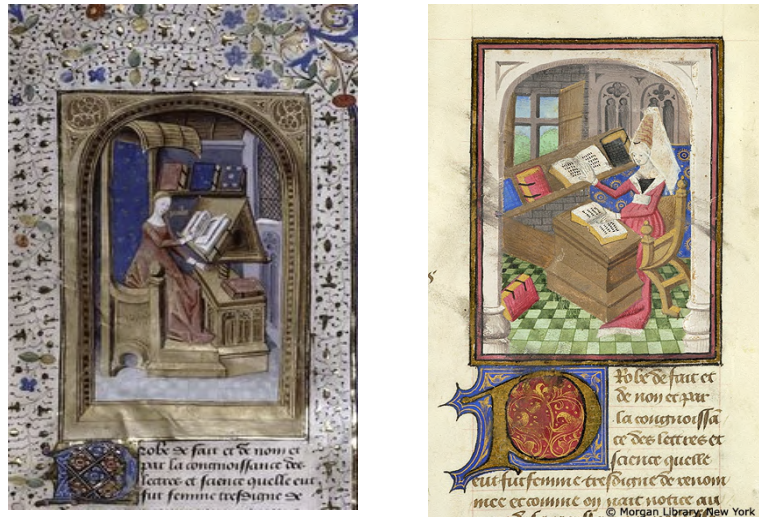 robe de fait et de nom et
par la congnoissance des
lettres et science quelle eut
fut femme tresdigne de
Probe de fait et
de nom et par
la congnoissā
ce des lettres et
science quelle
eut fut femme tresdigne de renom
mee et comme on
© Morgan Library, New York